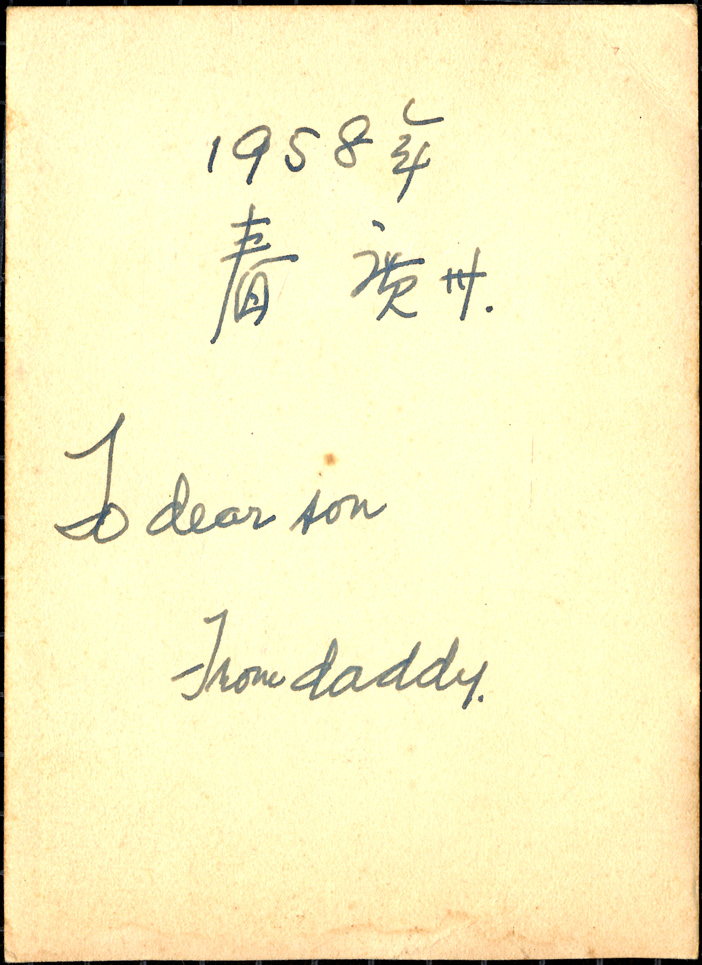 1958年
春 廣州.
To dear son
From daddy.